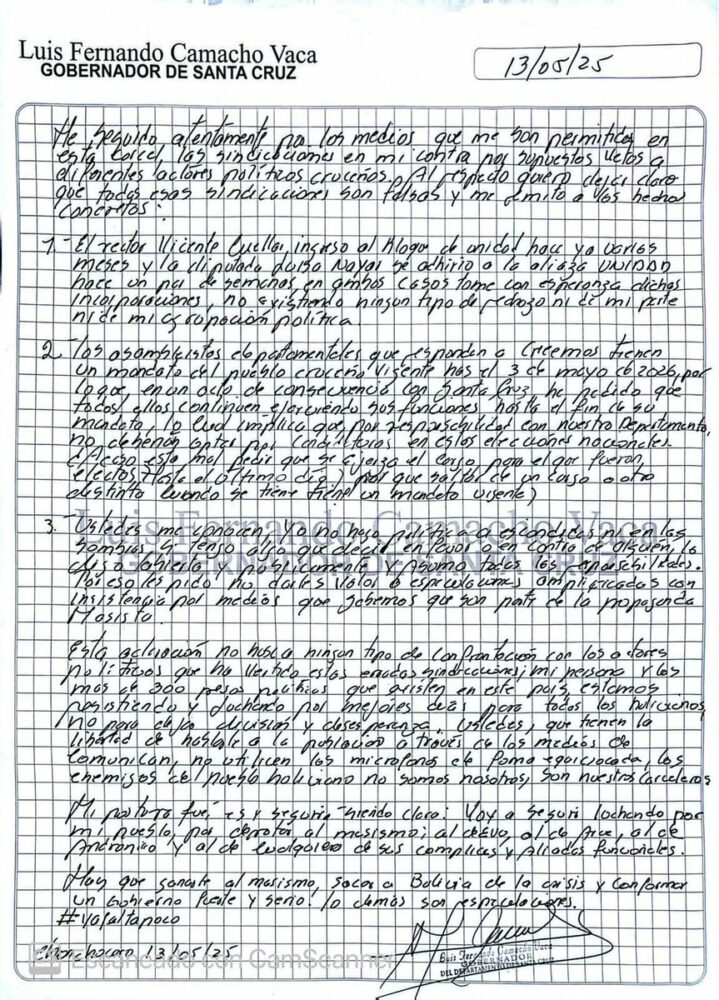 Luis Fernando Camacho Vaca
GOBERNADOR DE SANTA CRUZ
13/05/25
He seguido atentamente por los medios que me son permitidos en
esta carcel, las sindicaciones en mi contra por supuestos vetos a
diferentes actores políticos cruceños. Al respecto quiero dejar claro
que todas esas sindicaciones son falsas y me remito a los hechos
concretos:
1.- El rector Vicente Cuellar, ingreso al bloque de unidad hace ya varios
meses y la diputada Luisa Nayar se adhirio a la alianza UNIDAD
hace un par de semanas, en ambos casos tome con esperanza dichas
incorporaciones, no existiendo ningun tipo de rechazo ni de mi parte
ni de mi agrupación política.
2.- Los asambleistas departamentales que responden a Creemos tienen
un mandato del pueblo cruceño vigente has el 3 de mayo de 2026, por
lo que, en un acto de consecuencia con Santa Cruz he pedido que
todos ellos continuen ejerciendo sus funciones hasta el fin de su
mandato, lo cual implica que, por responsabilidad con nuestro Departamento,
no deberian optar por candidaturas en estas elecciones nacionales.
¿Acaso esta mal pedir que se ejerza el cargo para el que fueron
electos hasta el último día? por que saltar de un cargo a otro
distinto cuando se tiene un mandato vigente)
3.- Ustedes me conocen, yo no hago politica a escondidas ni en las
sombras, si tengo algo que decir en favor o en contra de alguien, lo
digo abierta y publicamente y asumo todas las
Por eso les pido no darles valor a especulaciones amplificadas con
insistencia por medios que sabemos que son parte de la propaganda
Masista.
Luis Fernando Camacho Vaca
GOBERNADOR DE SANTA CRUZ
Esta aclaración no busca ningun tipo de confrontación con los actores
políticos que ha vertido estas sindicaciones; mi persona y los
mas de 300 presos políticos que existen en este país, estamos
resistiendo y luchando por mejores dias para todos los bolivianos,
no para division y desesperanza. Ustedes, que tienen la
libertad de hablarle a la población a través de los medios de
comunican, no utilicen los microfonos de forma equivocada, los
enemigos del pueblo boliviano no somos nosotros, son nuestros carceleros
Mi postura fué, es y seguira siendo claro: Voy a seguir luchando por
mi pueblo, por derrotar al masismo; al de evo, al de Arce, al de
Andronico y al de cualquiera de sus complices y aliados funcionales.
Hay que ganarle al masismo, sacar a Bolivia de la crisis y conformar
un Gobierno fuerte y serio. lo demas son especulaciones.
#yafaltapoco
chonchocoro 13/05/25
Luis Fernando Camacho Vaca
GOBERNADOR
DEL DEPARTAMENTO DE SANTA CRUZ
Escaneado con CamScanner